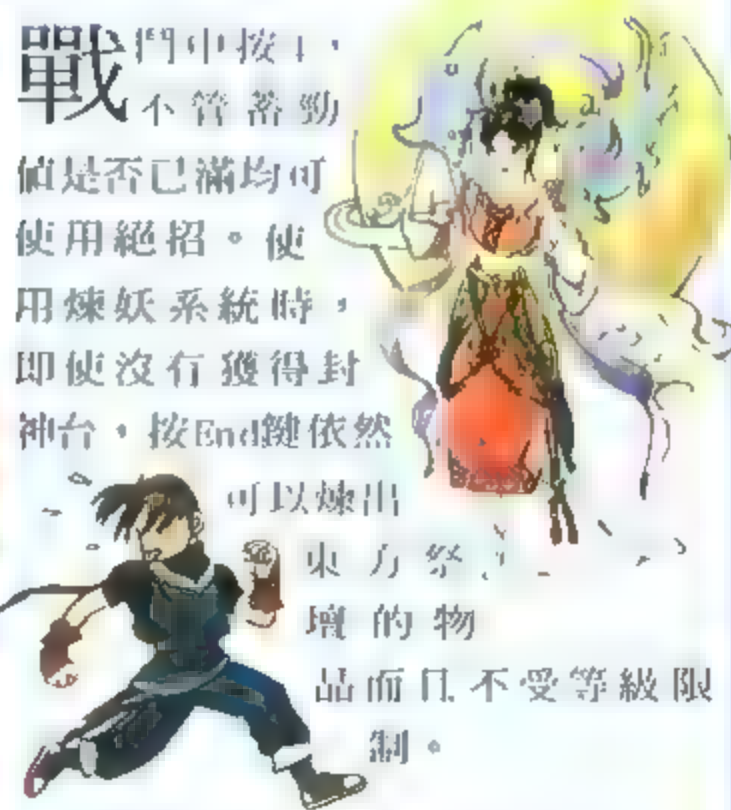 戰鬥中按，
不管蓄勁
值是否已滿均可
使用絕招。使
用煉妖系統時，
即使沒有獲得封
神台，按End鍵依然
可以煉出
東方祭
壇的物
品而且不受等級限
制。